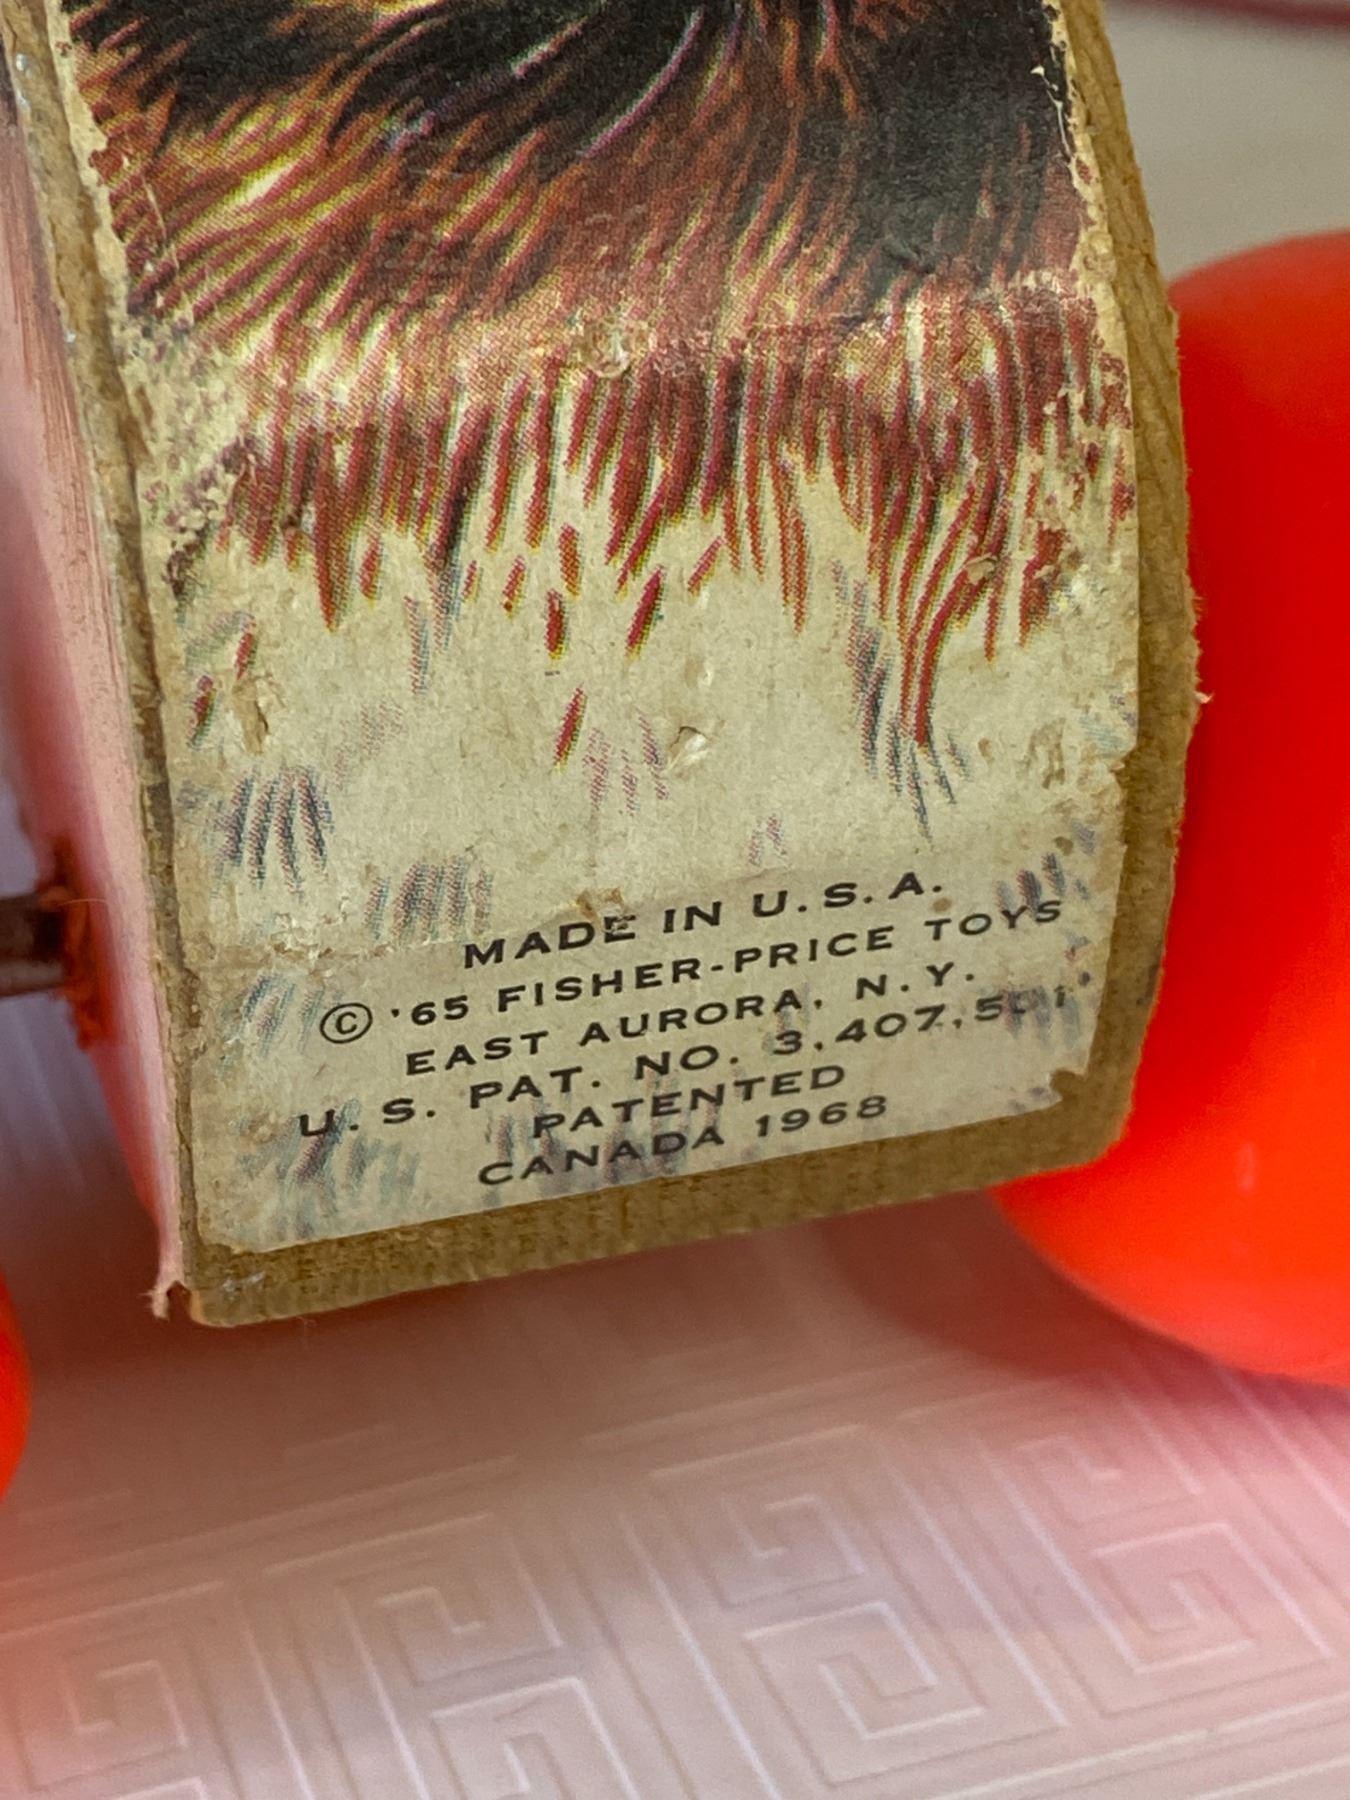 MADE IN U.S.A.
© '65 FISHER-PRICE TOYS
EAST AURORA, N.Y.
U.S. PAT. NO.
PATENTED
CANADA 1968